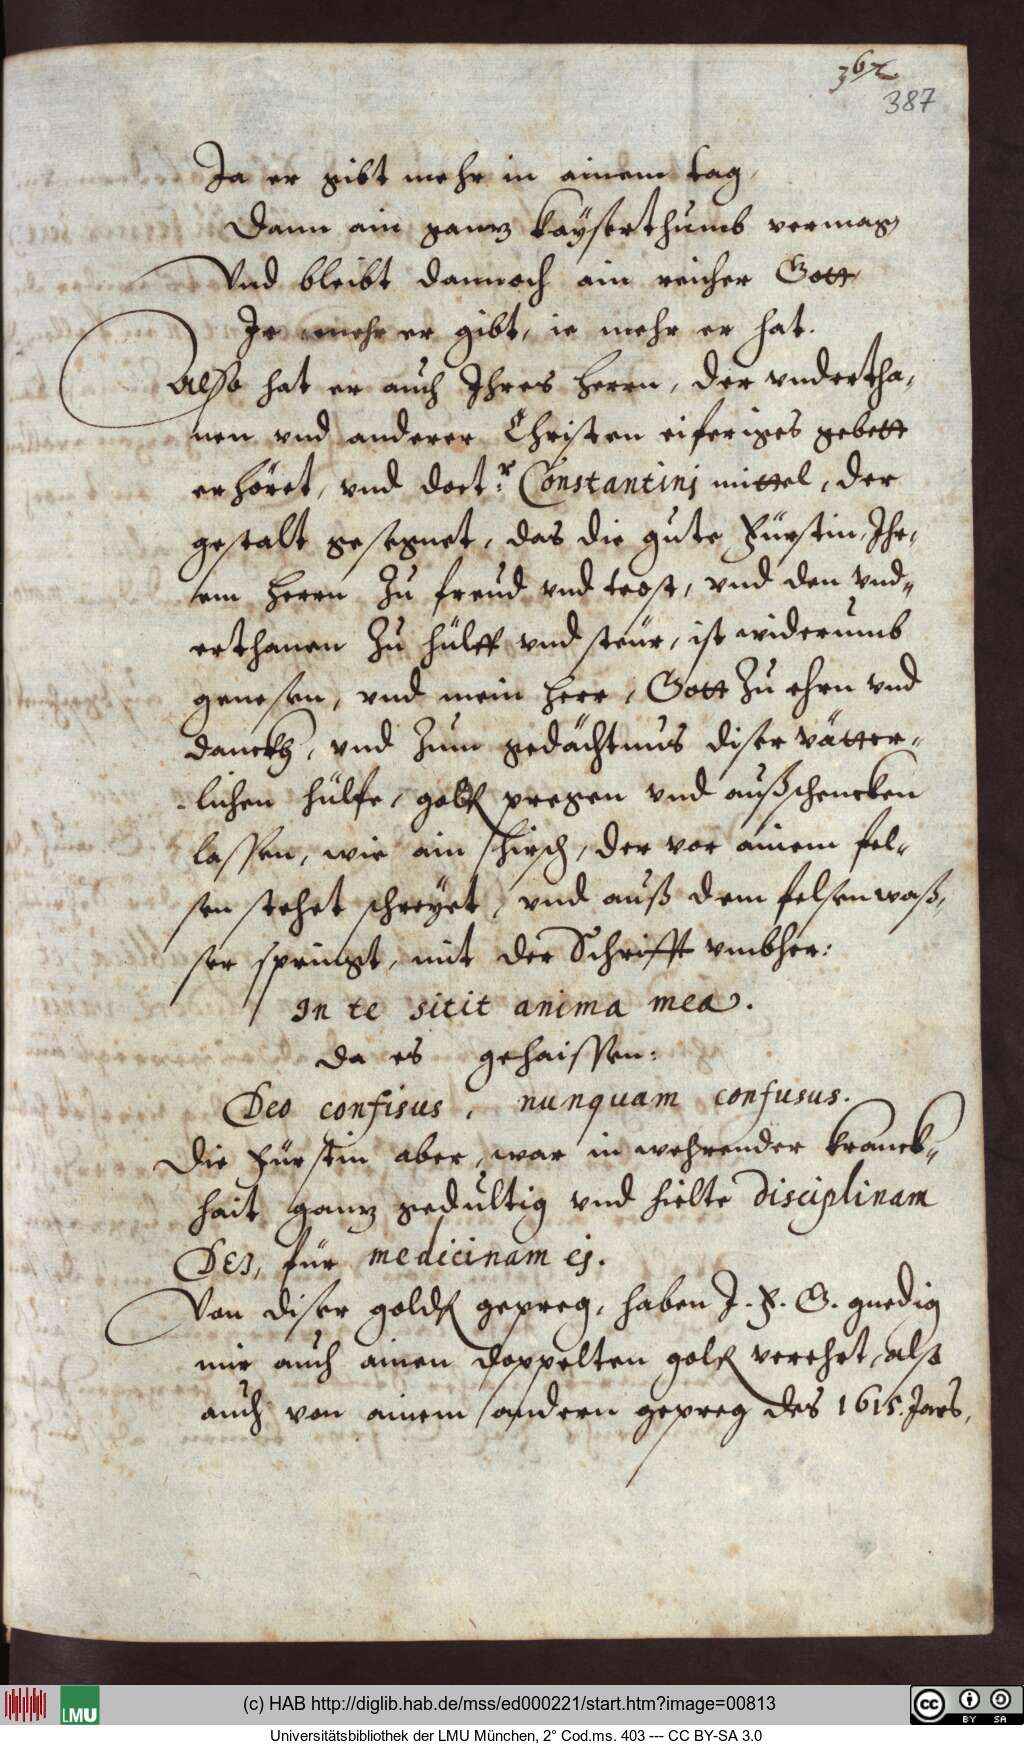 362
387
Ja er gibt mehr in ainem tag,
Dann ain ganz kaÿserthumb vermag
Vnd bleibt dannoch ain reicher Gott
Je mehr er gibt, ie mehr er hat.
Also hat er auch Ihres herrn, der vndertha,
nen vnd anderer Christen eiferiges gebett
erhöret, vnd doct:r Constantinj mittel, der
gestalt gesegnet, das die gute Fürstin, Ihr,
em herrn Zu freud vnd trost, vnd den vnd„
erthanen Zu hülff vnd steür, ist widerumb
genesen, vnd mein herr, Gott Zu ehrn vnd
danckh, vnd Zum gedächtnus diser vätter„
lichen hülfe, goldt pregen vnd außschencken
lassen, wie ain hirsch, der vor ainem fel„
sen stehet schreÿet, vnd auß dem felsen waß,
ser springt, mit der Schrifft vmbher:
In te sitit anima mea.
da es gehaissen:
Deo confisus, nunquam confusus.
Die Fürstin aber, war in wehrender kranck„
hait ganz gedultig vnd hielte disciplinam
DEJ, für medicinam ej.
Von diser goldt gepreg, haben J. F. G. gnedig
mir auch ainen doppelten goldt verehrt, als
auch von ainem andern gepreg des 1615. Jars,
(c) HAB http://diglib.hab.de/mss/ed000221/start.htm?image=00813
LMU
cc BY SA
Universitätsbibliothek der LMU München, 2° Cod.ms. 403 --- CC BY-SA 3.0